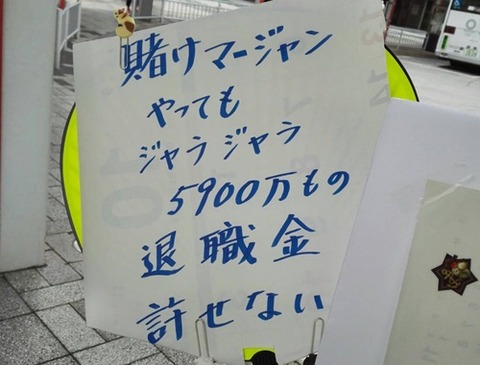 賭けマージャン
やっても
ジャラジャラ
5900万もの
退職金
許せない